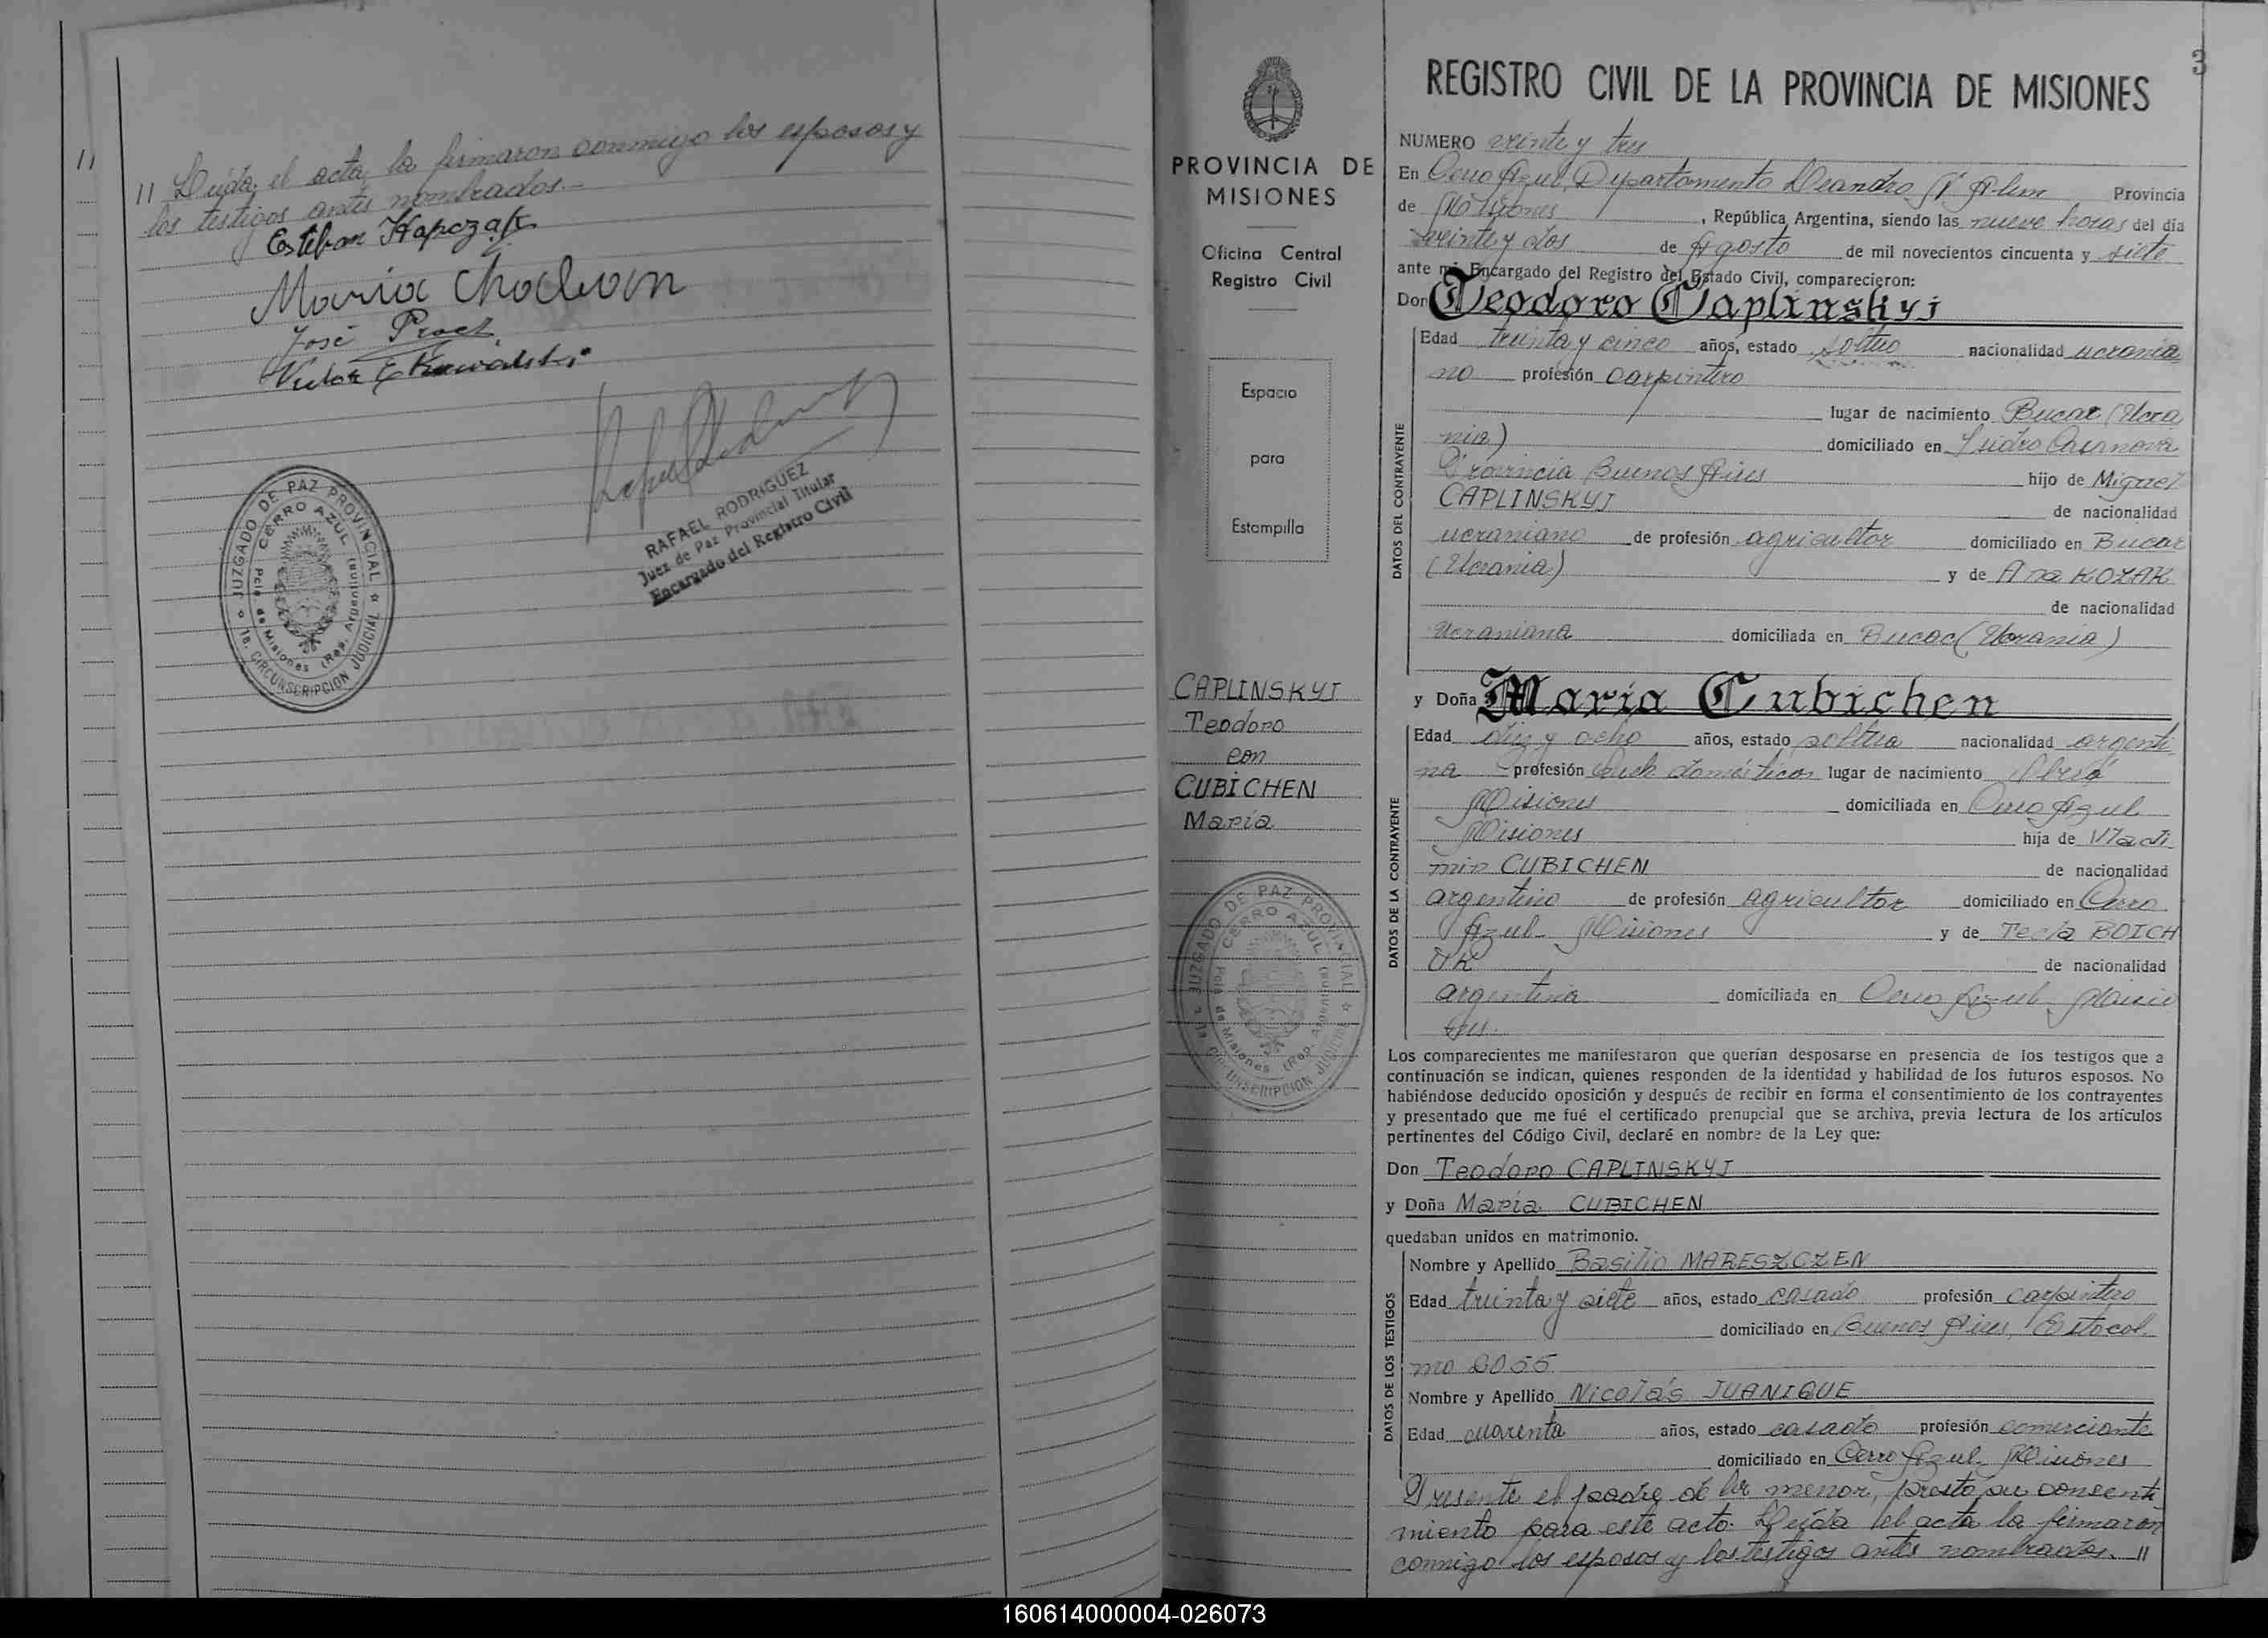 11
11 Leída el acta, la firmaron conmigo los esposos y
los testigos antes nombrados.-
Esteban Kapczak
Maria Chodvan
José Proct
Victor E Kowalski
RAFAEL RODRIGUEZ
Juez de Paz Provincial Titular
Encargado del Registro Civil
JUZGADO DE PAZ PROVINCIAL
CERRO AZUL
Pcia. de Misiones (Rep. Argentina)
1a. CIRCUNSCRIPCION JUDICIAL
PROVINCIA DE
MISIONES
Oficina Central
Registro Civil
Espacio
para
Estampilla
CAPLINSKYJ
Teodoro
con
CUBICHEN
María
JUZGADO DE PAZ PROVINCIAL
CERRO AZUL
Pcia. de Misiones (Rep. Argentina)
1a. CIRCUNSCRIPCION JUDICIAL
3
REGISTRO CIVIL DE LA PROVINCIA DE MISIONES
NUMERO veinte y tres
En Cerro Azul, Departamento Leandro N. Alem Provincia
de Misiones, República Argentina, siendo las nueve horas del día
veinte y dos de Agosto de mil novecientos cincuenta y siete
ante mí, Encargado del Registro del Estado Civil, comparecieron:
Don Teodoro Caplinskyj
Edad treinta y cinco años, estado soltero nacionalidad ucrania
no profesión carpintero
lugar de nacimiento Bucac (Ucra
nia) domiciliado en Isidro Casanova
Provincia Buenos Aires hijo de Miguel
CAPLINSKYJ de nacionalidad
ucraniano de profesión agricultor domiciliado en Bucac
(Ucrania) y de Ana KOZAK
de nacionalidad
Ucraniana domiciliada en Bucac (Ucrania)
DATOS DEL CONTRAYENTE
y Doña María Cubichen
Edad diez y ocho años, estado soltera nacionalidad argenti
na profesión queh. domésticos lugar de nacimiento Oberá
Misiones domiciliada en Cerro Azul
Misiones hija de Vladi
mir CUBICHEN de nacionalidad
argentino de profesión agricultor domiciliado en Cerro
Azul- Misiones y de Tecla BOICH
UK de nacionalidad
argentina domiciliada en Cerro Azul- Misio
nes.
DATOS DE LA CONTRAYENTE
Los comparecientes me manifestaron que querían desposarse en presencia de los testigos que a
continuación se indican, quienes responden de la identidad y habilidad de los futuros esposos. No
habiéndose deducido oposición y después de recibir en forma el consentimiento de los contrayentes
y presentado que me fué el certificado prenupcial que se archiva, previa lectura de los artículos
pertinentes del Código Civil, declaré en nombre de la Ley que:
Don Teodoro CAPLINSKYJ
y Doña María CUBICHEN
quedaban unidos en matrimonio.
Nombre y Apellido Basilio MARESZCZEN
Edad treinta y siete años, estado casado profesión carpintero
domiciliado en Buenos Aires, Estocol
mo 2055
Nombre y Apellido Nicolás JUANIQUE
Edad cuarenta años, estado casado profesión comerciante
domiciliado en Cerro Azul- Misiones
DATOS DE LOS TESTIGOS
Presente el padre de la menor, presta su consenti
miento para este acto. Leída el acta la firmaron
conmigo los esposos y los testigos antes nombrados. 11
160614000004-026073